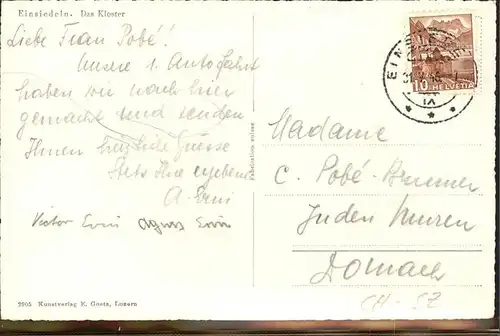 Einsiedeln. Das Kloster
Liebe Frau Pobé!
Unsere 1. Autofahrt
haben wir nach hier
gemacht und senden
Ihnen herzliche Grüsse
Stets Ihre ergebene
A. Erni
Victor Erni Agnes Erni
Fabrication suisse
EINSIEDELN
IX
10 HELVETIA
Madame
C. Pobé-Brunner
In den Mauren
Dornach
CH-SZ
2905 Kunstverlag E. Goetz, Luzern